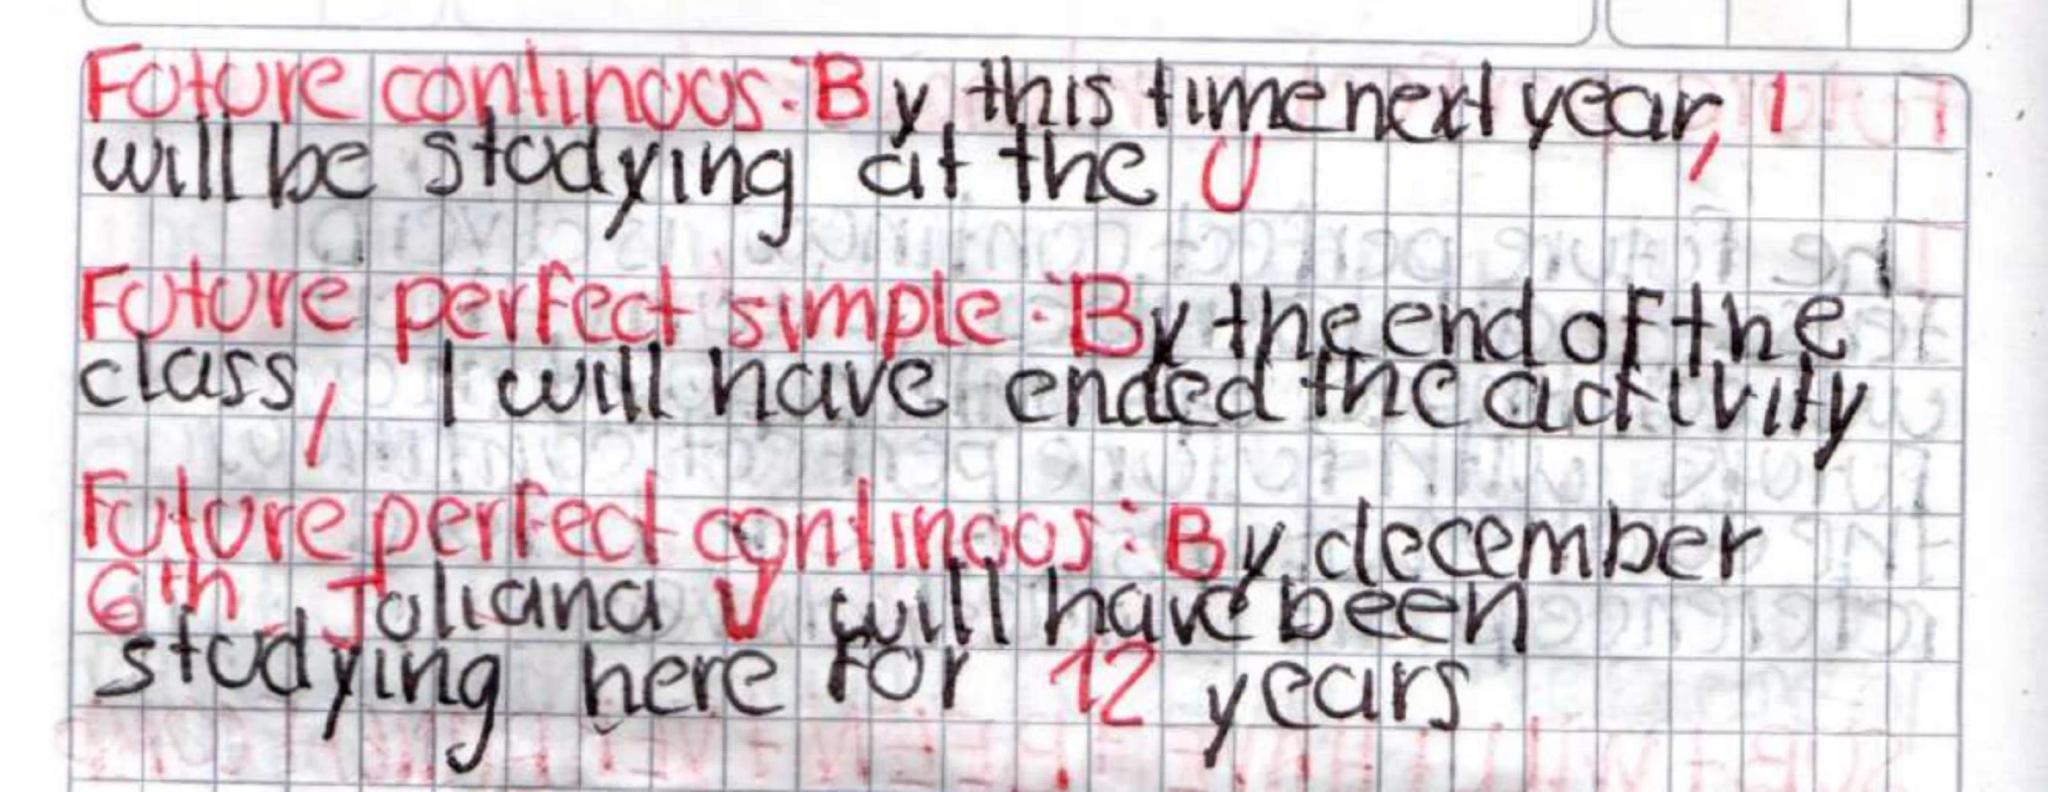 Future continuous: By this time next year, I
will be studying at the U
Future perfect simple: By the end of the
class, I will have ended the activity
Future perfect continuous: By december
6th Juliana V will have been
studying here for 12 years